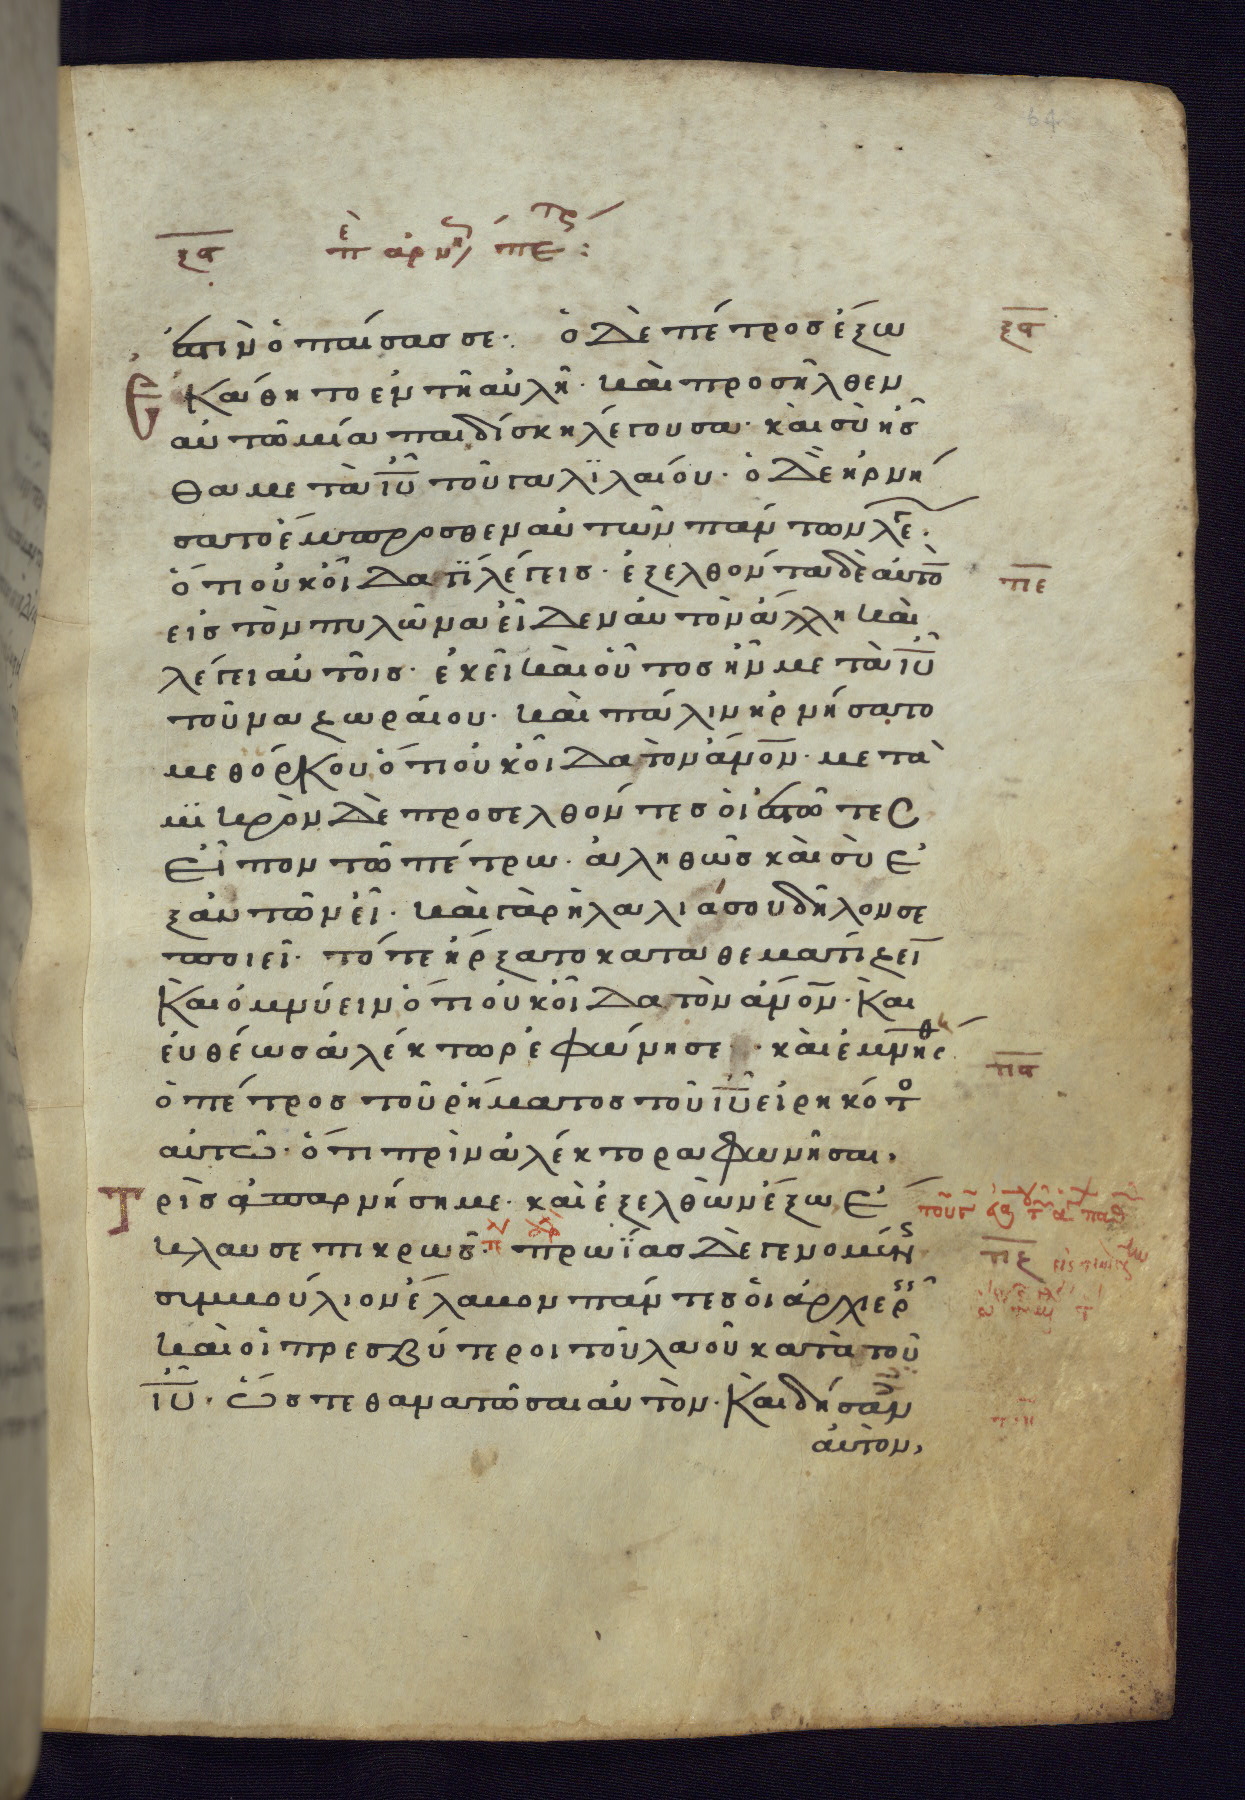 64
ξα π̅ ἀρν πε:
ἐστὶν ὁ παίσασ σε· ὁ δὲ πέτροσ ἔξω
ξα
Ἐκάθητο ἐν τῆ αὐλῆ· καὶ προσῆλθεν
αὐτῶ μία παιδίσκη λέγουσα· καὶ σὺ ἦσ
θα μετὰ ι̅υ̅ τοῦ γαλϊλαίου· ὁ δὲ ἠρνή
σατο ἔμπροσθεν αὐτῶν πάντων λε·
ὅτι οὐκ οἶδα τί λέγεισ· ἐξελθόντα δὲ αὐτὸ
π̅ε̅
εισ τὸν πυλῶνα εἶδεν αὐτὸν ἄλλη καὶ
λέγει αὐτοῖσ· ἐκεῖ καὶ οὗτοσ ἦν μετὰ ι̅υ̅
τοῦ ναζωραίου· καὶ πάλιν ἠρνήσατο
μεθ ὅρκου ὅτι οὐκ οἶδα τὸν ἄνο̅ν· μετὰ
μϊκρὸν δὲ προσελθόντεσ οἱ ἑστῶτεσ
εἶπον τῶ πέτρω· ἀληθῶσ καὶ σὺ ἐ
ξ αὐτῶν εἶ· καὶ γὰρ ἡ λαλιά σου δῆλόν σε
ποιεῖ· τότε ἤρξατο καταθεματίζει̅
Καὶ ὀμνύειν ὅτι οὐκ οἶδα τὸν ἄνο̅ν· Καὶ
ἐυθέωσ ἀλέκτωρ ἐφώνησε· καὶ ἐμνήσθ
ὁ πέτροσ τοῦ ῥήματοσ τοῦ ι̅υ̅ εἰρηκότο
π̅α̅
αὐτῶ· ὅτι πρὶν ἀλέκτορα φωνῆσαι,
Τρὶσ ἀπαρνήση με· καὶ ἐξελθὼν ἔξω ἔ
κλαυσε πικρῶσ· πρωΐασ δὲ γενομένησ
π̅ζ̅
σιμβούλιον ἔλαβον πάντεσ οἱ ἀρχιερ
καὶ οἱ πρεσβύτεροι τοῦ λαοῦ κατὰ τοῦ
ι̅υ̅· ὥστε θανατῶσαι αὐτόν· Καὶ δήσαν
αὐτον,